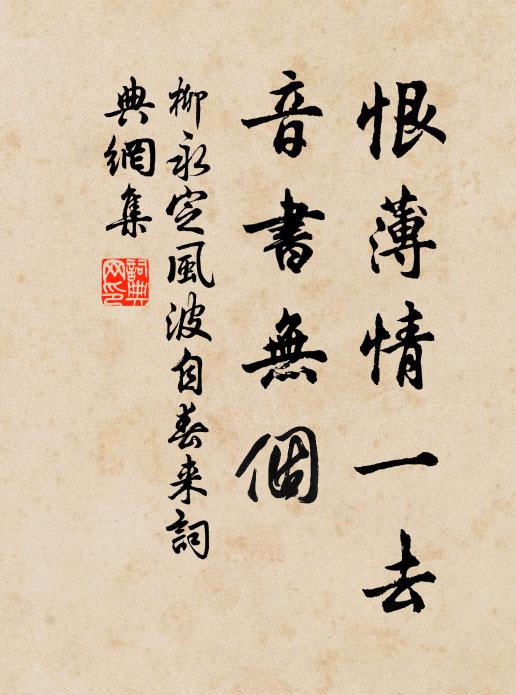 恨薄情一去
音書無個
柳永定風波自春来詞
典網集
詞典
网印